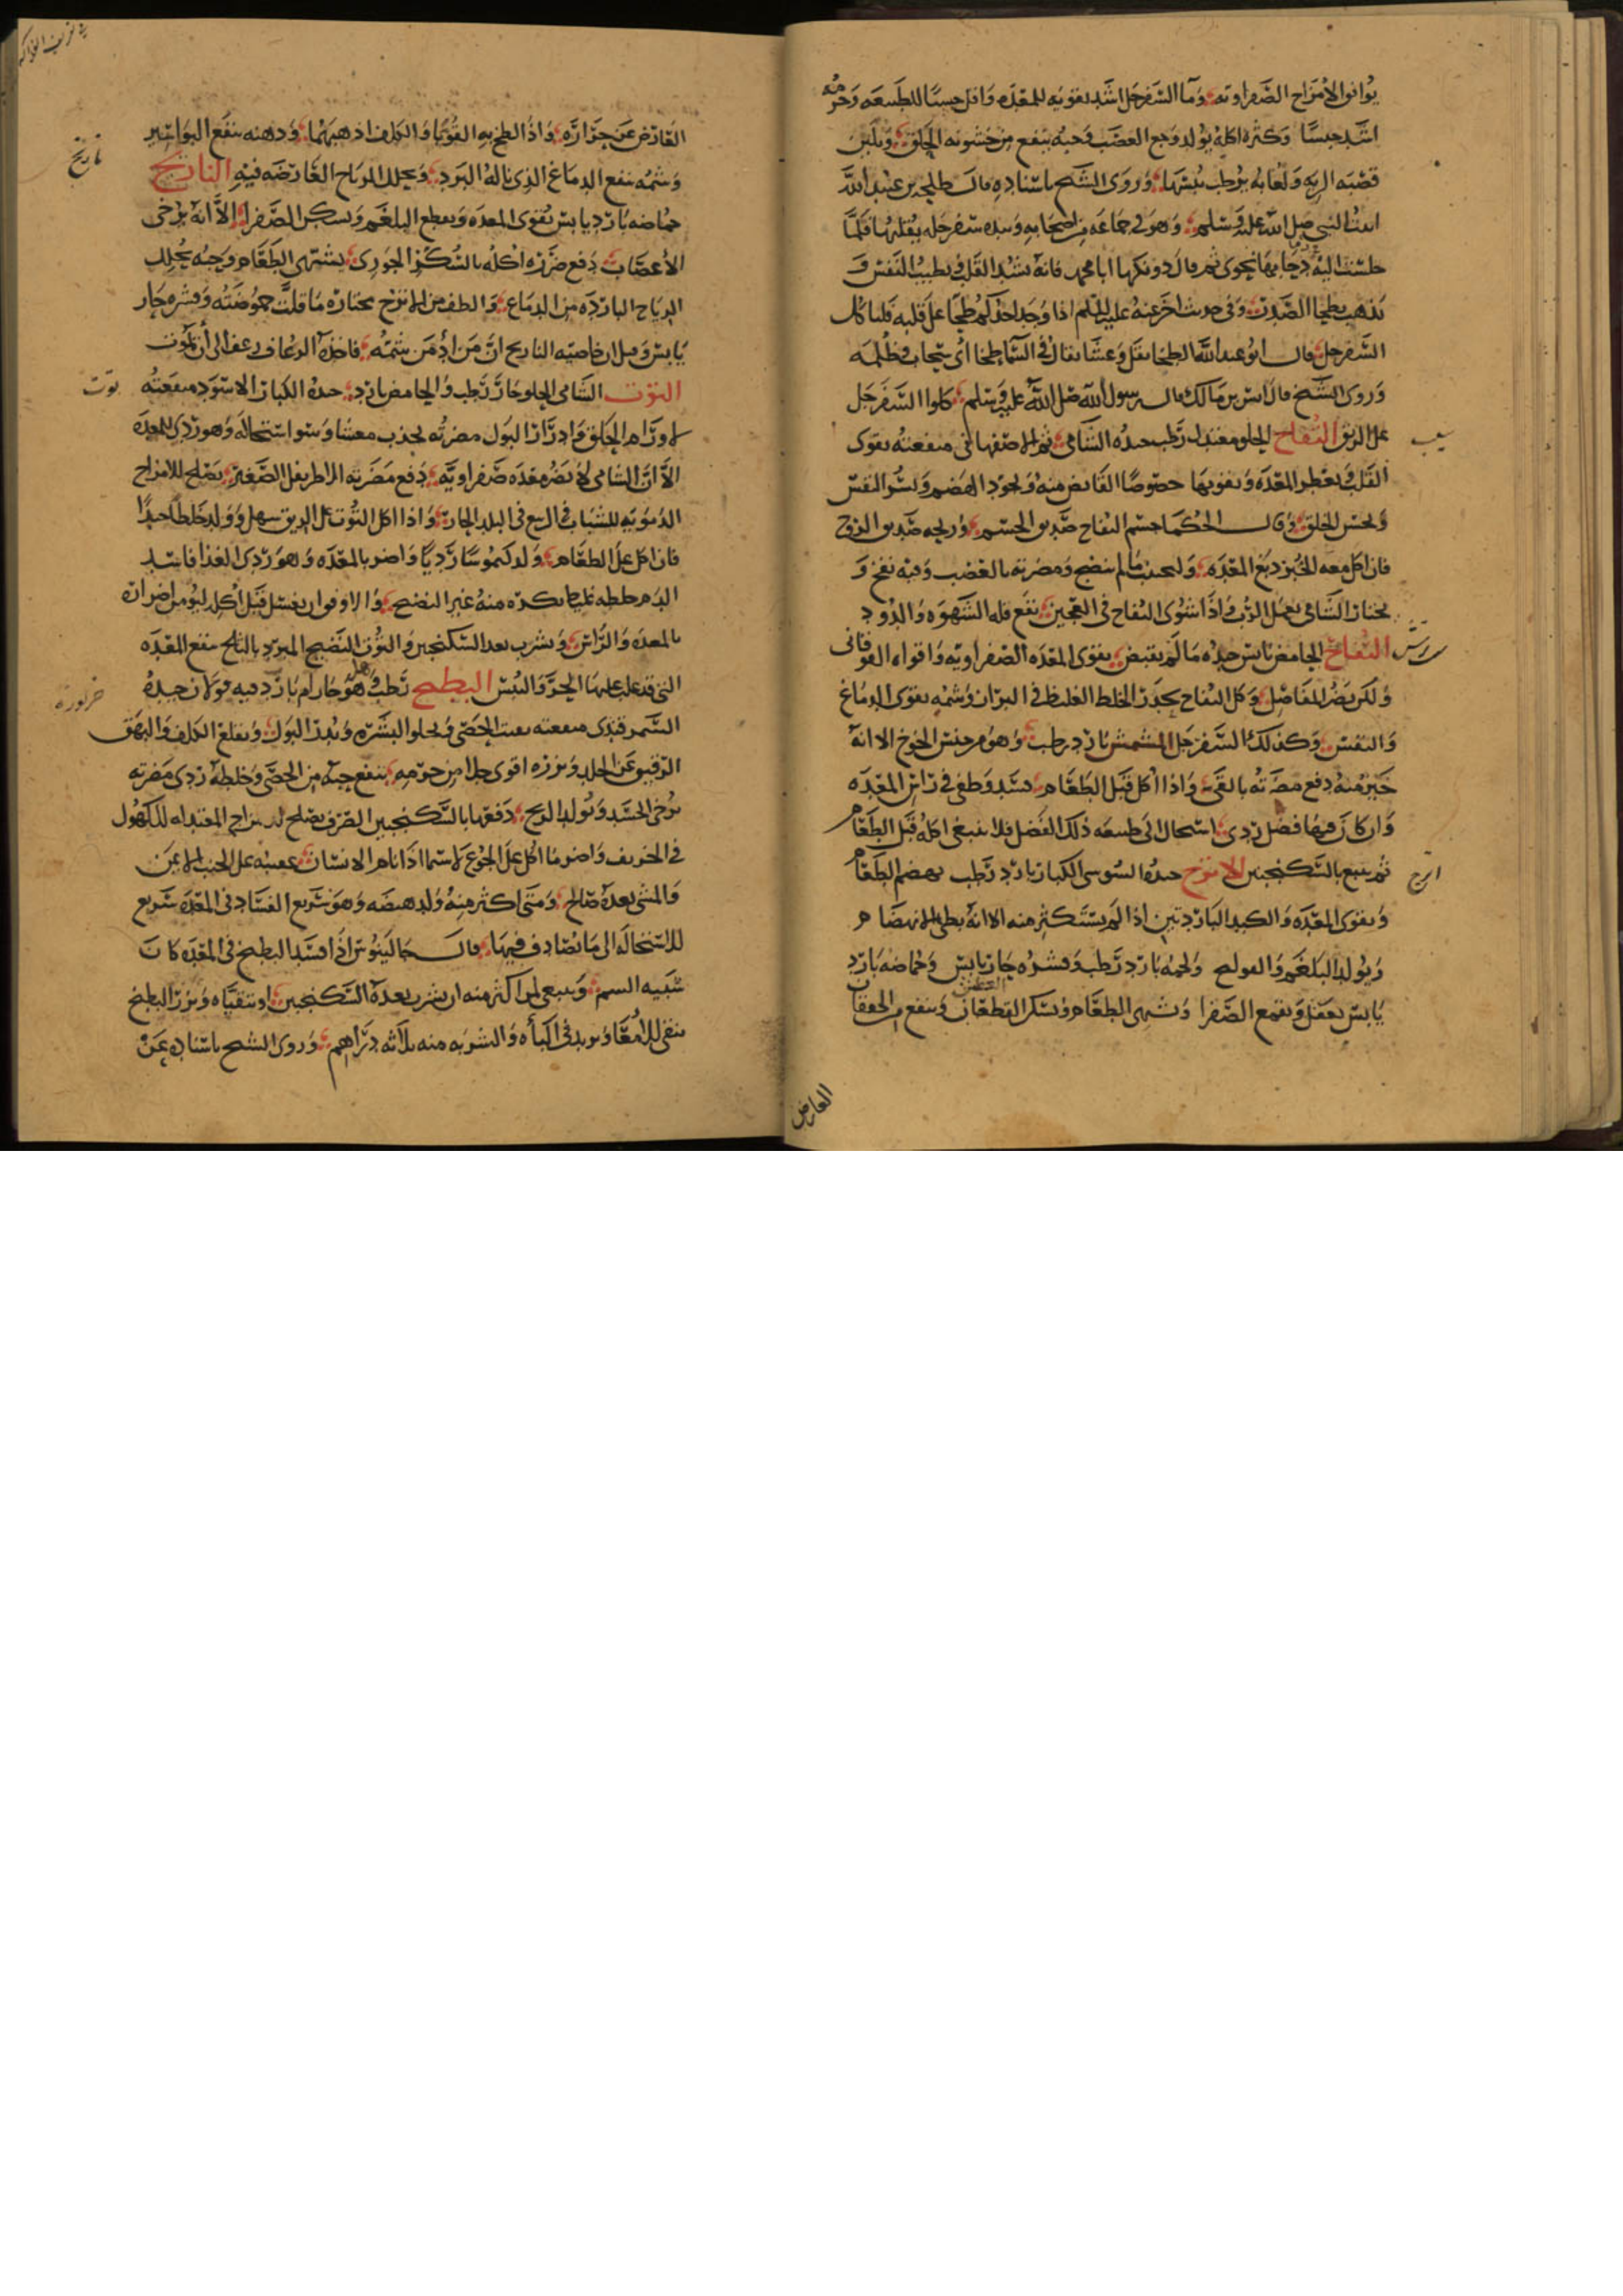 يوافق الامزاج الصفراويه وما السفرجل اشد تقويه للمعده واقل حبسا للطبيعه وجرمه
اشد حبسا وكثره اكله يولد وجع العصب وحبه ينفع من خشونه الحلق ويلين
قصبه الريه ولعابه يرطب يبسها وروى الشيخ باسناده قال طلحه بن عبيد الله
اتيت النبي صلى الله عليه وسلم وهو في جماعه من اصحابه وبيده سفرجله يقلبها فلما
جلست اليه دحا بها نحوي ثم قال دونكها ابا محمد فانها تشد القلب وتطيب النفس و
تذهب بطخا الصدر وفي حديث اخر عنه عليه السلم اذا وجد احدكم طخا على قلبه فلياكل
السفرجل قال ابو عبيد الله الطخا ثقل وغشا يقال في السما طخا اي سحاب وظلمه
وروى الشيخ قال انس بن مالك قال رسول الله صلى الله عليه وسلم كلوا السفرجل
على الريق التفاح الحلو معتدل رطب جيده الشامي ثم الاصفهاني منفعته يقوى
القلب ويعطر المعده ويقويها خصوصا القابض منه ويجود الهضم ويسر النفس
ويحسن الخلق وقال الحكما جسم التفاح صديق الجسم وريحه صديق الروح
فان اكل معه الخبز دبغ المعده وليجتنب ما لم ينضج ومضرته بالعصب وفيه نفخ و
يختار الشامي يعمل الرب واذا شوى التفاح في العجين نفع قله الشهوه والدود
التفاح الحامض يابس جيده ما لم يقبض يقوى المعده الصفراويه واقواه الفوقاني
ولكن يضر المفاصل وكل التفاح يحدر الخلط الغليظ في البراز وشمه يقوى الدماغ
والنفس وكذلك السفرجل المشمش بارد رطب وهو من جنس الخوخ الا انه
خير منه دفع مضرته بالقي واذا اكل قبل الطعام فسد وطفى في راس المعده
وان كان فيها فضل ردي استحال الى طبيعه ذلك الفضل فلا ينبغى اكله قبل الطعام
ثم يتبع بالسكنجبين الاترج جيده السوسي الكبار بارد رطب يهضم الطعام
ويقوى المعده والكبد الباردتين اذا لم يستكثر منه الا انه بطى الانهضام
ويولد البلغم والقولنج ولحمه بارد رطب وقشره حار يابس وحماضه بارد
يابس يعقل ويقمع الصفرا ويشهى الطعام ويسكن العطش وينفع من الخفقان
سيب
اترج
العارض
العارض عن حراره واذا لطخ به القوبا والكلف اذهبهما ودهنه ينفع البواسير
وشمه ينفع الدماغ الذي ناله البرد ويحلل الرياح العارضه فيه النارنج
حماضه بارد يابس يقوى المعده ويقطع البلغم ويسكن الصفرا الا انه يرخى
الاعصاب دفع ضرره اكله بالسكر الجوري يشهى الطعام وحبه يحلل
الرياح البارده من الدماغ والطف من الاترج يختار ما قلت حموضته وقشره حار
يابس وقيل ان خاصيه النارنج ان من ادمن شمه فاخذه الرعاف رعف الى ان يموت
التوت الشامي الحلو حار رطب والحامض بارد جيده الكبار الاسود منفعته
لاورام الحلق وادرار البول مضرته يجذب مغسا وسو استحاله وهو ردى للمعده
الا ان الشامي لا يضر معده صفراويه دفع مضرته الاطريفل الصغير يصلح للامزاج
الدمويه للشباب في الربيع في البلد الحار واذا اكل التوت على الريق سهل وولد خلطا جيدا
فان اكل على الطعام ولد كيموسا رديا واضر بالمعده وهو ردى الغذا فاسد
الدم خلطه غليظ يكره منه غير النضيج والاوفق ان يغسل قبل اكله ليومن اضراره
بالمعده والراس ويشرب بعده السكنجبين والتوت النضيج المبرد بالثلج ينفع المعده
التي قد غلب عليها الحر واليبس البطيخ رطب وهل هو حار ام بارد فيه قولان جيده
السمرقندى منفعته يفتت الحصى ويجلو البشره ويدر البول ويقلع الكلف والبهق
الرقيق عن الجلد وبزره اقوى جلا من جرمه ينفع حبه من الحصى وخلطه ردى مضرته
يرخى الجسد ويولد الريح دفعها بالسكنجبين الصرف يصلح للمزاج المعتدله للكهول
في الخريف واضر ما اكل على الجوع لا سيما اذا نام الانسان عقيبه على الجنب الايمن
والمشى بعده صالح ومتى اكثر منه ولد هيضه وهو سريع الفساد في المعده سريع
للاستحاله الى ما يصادف فيها قال جالينوس اذا فسد البطيخ في المعده كان
شبيه السم وينبغى لمن اكثر منه ان يشرب بعده السكنجبين او يتقياه وبزر البطيخ
ينقى الامعا ويزيد في الباه والشربه منه ثلاثه دراهم وروى الشيخ باسناده عن
نارنج
توت
خربوزه